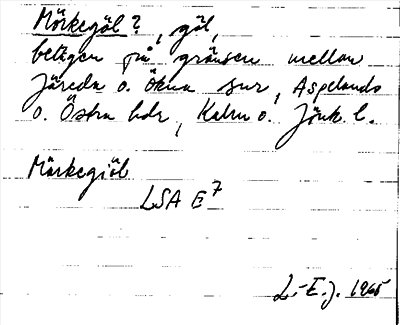 Mörkegöl?, göl,
belägen på gränsen mellan
Järeda o. Ökna snr, Aspelands
o. Östra hdr, Kalm o. Jönk. l.
Mörkegiöl
LSA E7
L-E. J. 1965